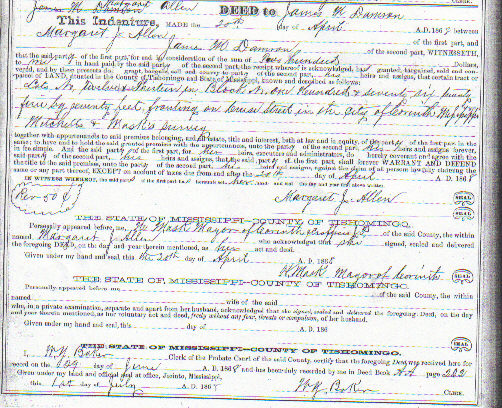 Clerk.
James M Dawson Margaret J Allen DEED to James M Dawson
This Indenture, MADE the 20th day of April A.D. 186 between
Margaret J. Allen of the first part, and
James M Dawson of the second part, WITNESSETH,
that the said party of the first part, for and in consideration of the sum of Two hundred Dollars,
to in hand paid by the said party of the second part, the receipt whereof is acknowledged, ha granted, bargained, sold and con-
veyed, and by these presents do grant, bargain, sell and convey to party of the second part, his heirs and assigns, that certain tract or
parcel of LAND, situated in the County of Tishomingo and State of Mississippi, known and described as follows:
Lots No. twelve & in Block No. One hundred & seventy six
five by seventy feet, fronting on street in the City of Corinth Mississippi
Mitchell & Mask's survey
together with appurtenances to said premises belonging, and all estate, title and interest, both at law and in equity, of the party of the first part in the
same; to have and to hold the said granted premises with the appurtenances, unto the party of second part, his heirs and assigns forever,
in fee simple. And the said party of the first part, for heirs, executors and administrators, do hereby covenant and agree with the
said party of second part, his heirs and assigns, that the said party of the first part shall forever WARRANT AND DEFEND
the title of the said premise, unto the party of second part, his heirs and assigns, against the claim of all persons lawfully claiming the
same or any part thereof, EXCEPT on account of taxes due from and after the 20th day of April A.D. 186
IN WITNESS WHEREOF, the said part of the first part ha hereunto set her hand and seal the day and year first above written.
Rev 50¢ Margaret J. Allen SEAL
SEAL
THE STATE OF MISSISSIPPI—COUNTY OF TISHOMINGO.
Personally appeared before me, Mask Mayor of Corinth of the said County, the within
named Margaret J Allen who acknowledged that she signed, sealed and delivered
the foregoing DEED, on the day and year therein mentioned, as her act and deed.
Given under my hand and seal, this the 20th day of April A.D. 186
Mask Mayor of Corinth SEAL
THE STATE OF MISSISSIPPI—COUNTY OF TISHOMINGO.
Personally appeared before me of the said County, the within
named wife of the said
who, in a private examination, separate and apart from her husband, acknowledged that she signed, sealed and delivered the foregoing Deed, on the day
and year therein mentioned, as her voluntary act and deed, freely without any fear, threats or compulsion, of her husband.
Given under my hand and seal, this day of A.D. 186
SEAL
THE STATE OF MISSISSIPPI—COUNTY OF TISHOMINGO.
I, Clerk of the Probate Court of the said County, certify that the foregoing Deed was received here for
record on the day of June A.D. 186 and has been duly recorded by me in Deed Book page
Given under my hand and official seal at office, Jacinto, Mississippi,
this 1st day of July A.D. 186
Clerk.